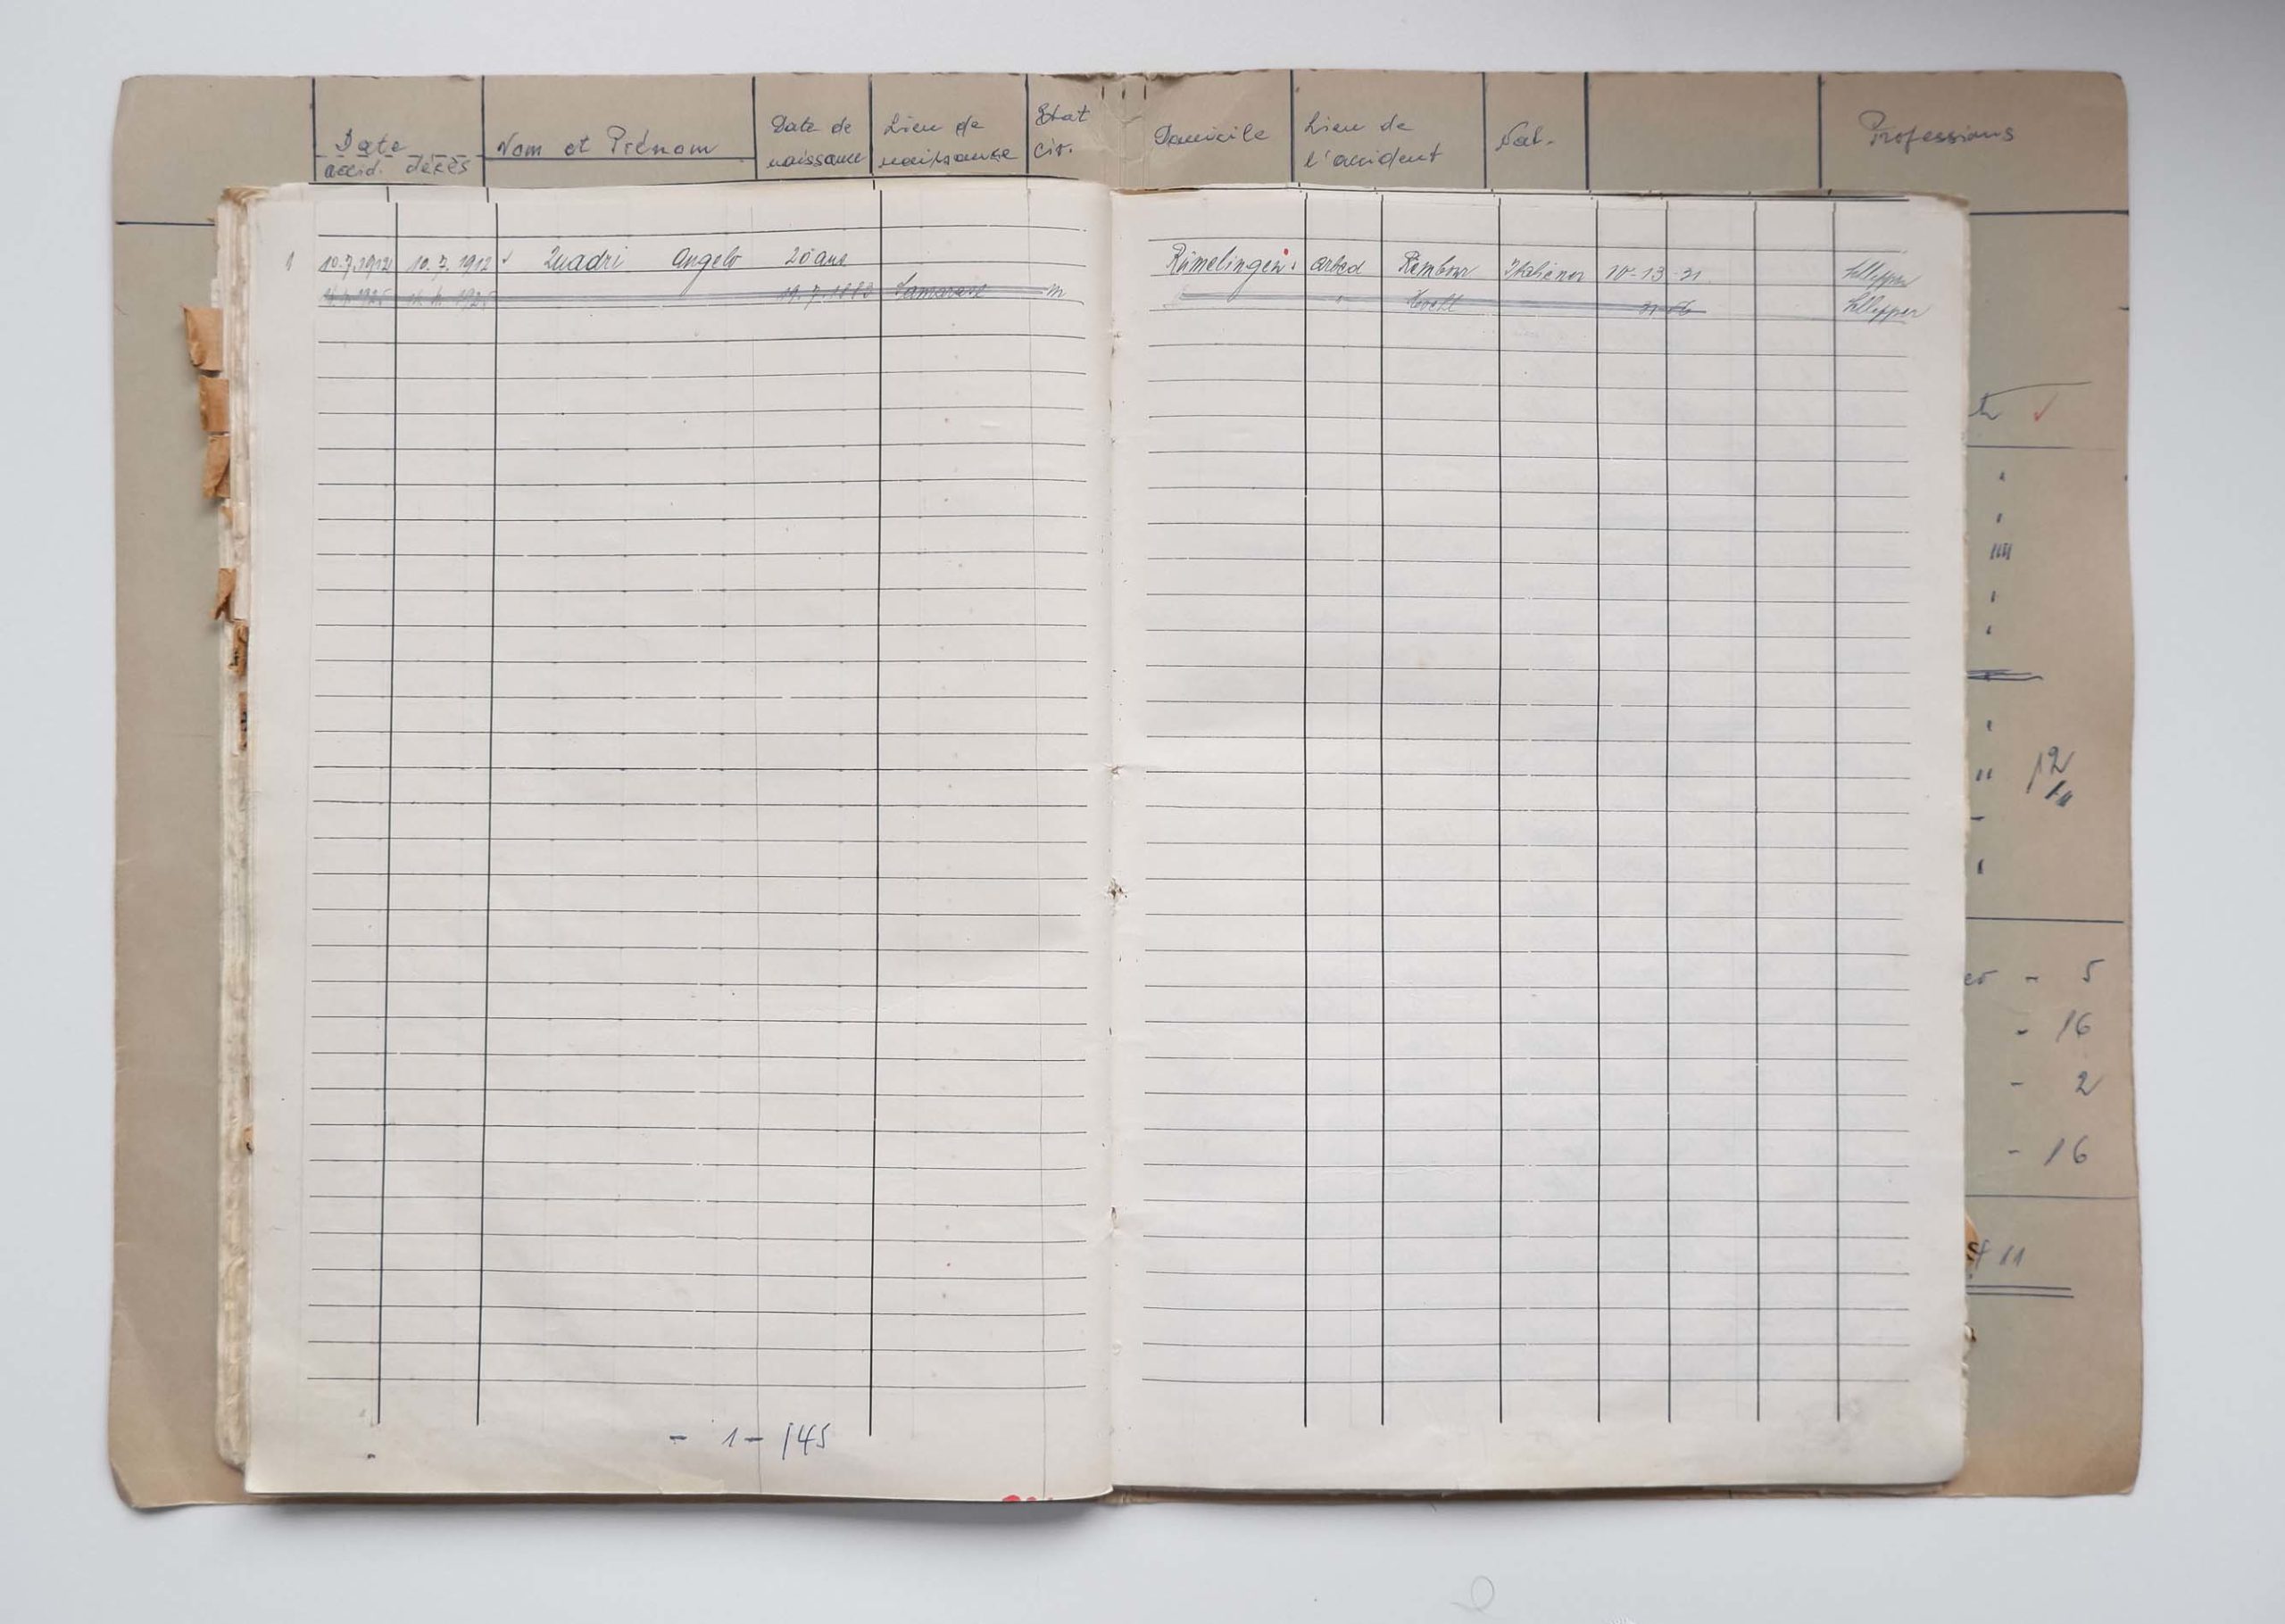 Date
accid. décès
Nom et Prénom
Date de naissance
Lieu de naissance
Etat civ.
Domicile
Lieu de l'accident
Nat.
Professions
1 10.7.1912 10.7.1912 Quadri Angelo 20 ans Rümelingen Arbed Rembour Italiener 10-13 31 Schlepper
19.7.1883 m " Schlepper
- 1 - 145
12
- 5
- 16
- 2
- 16
11